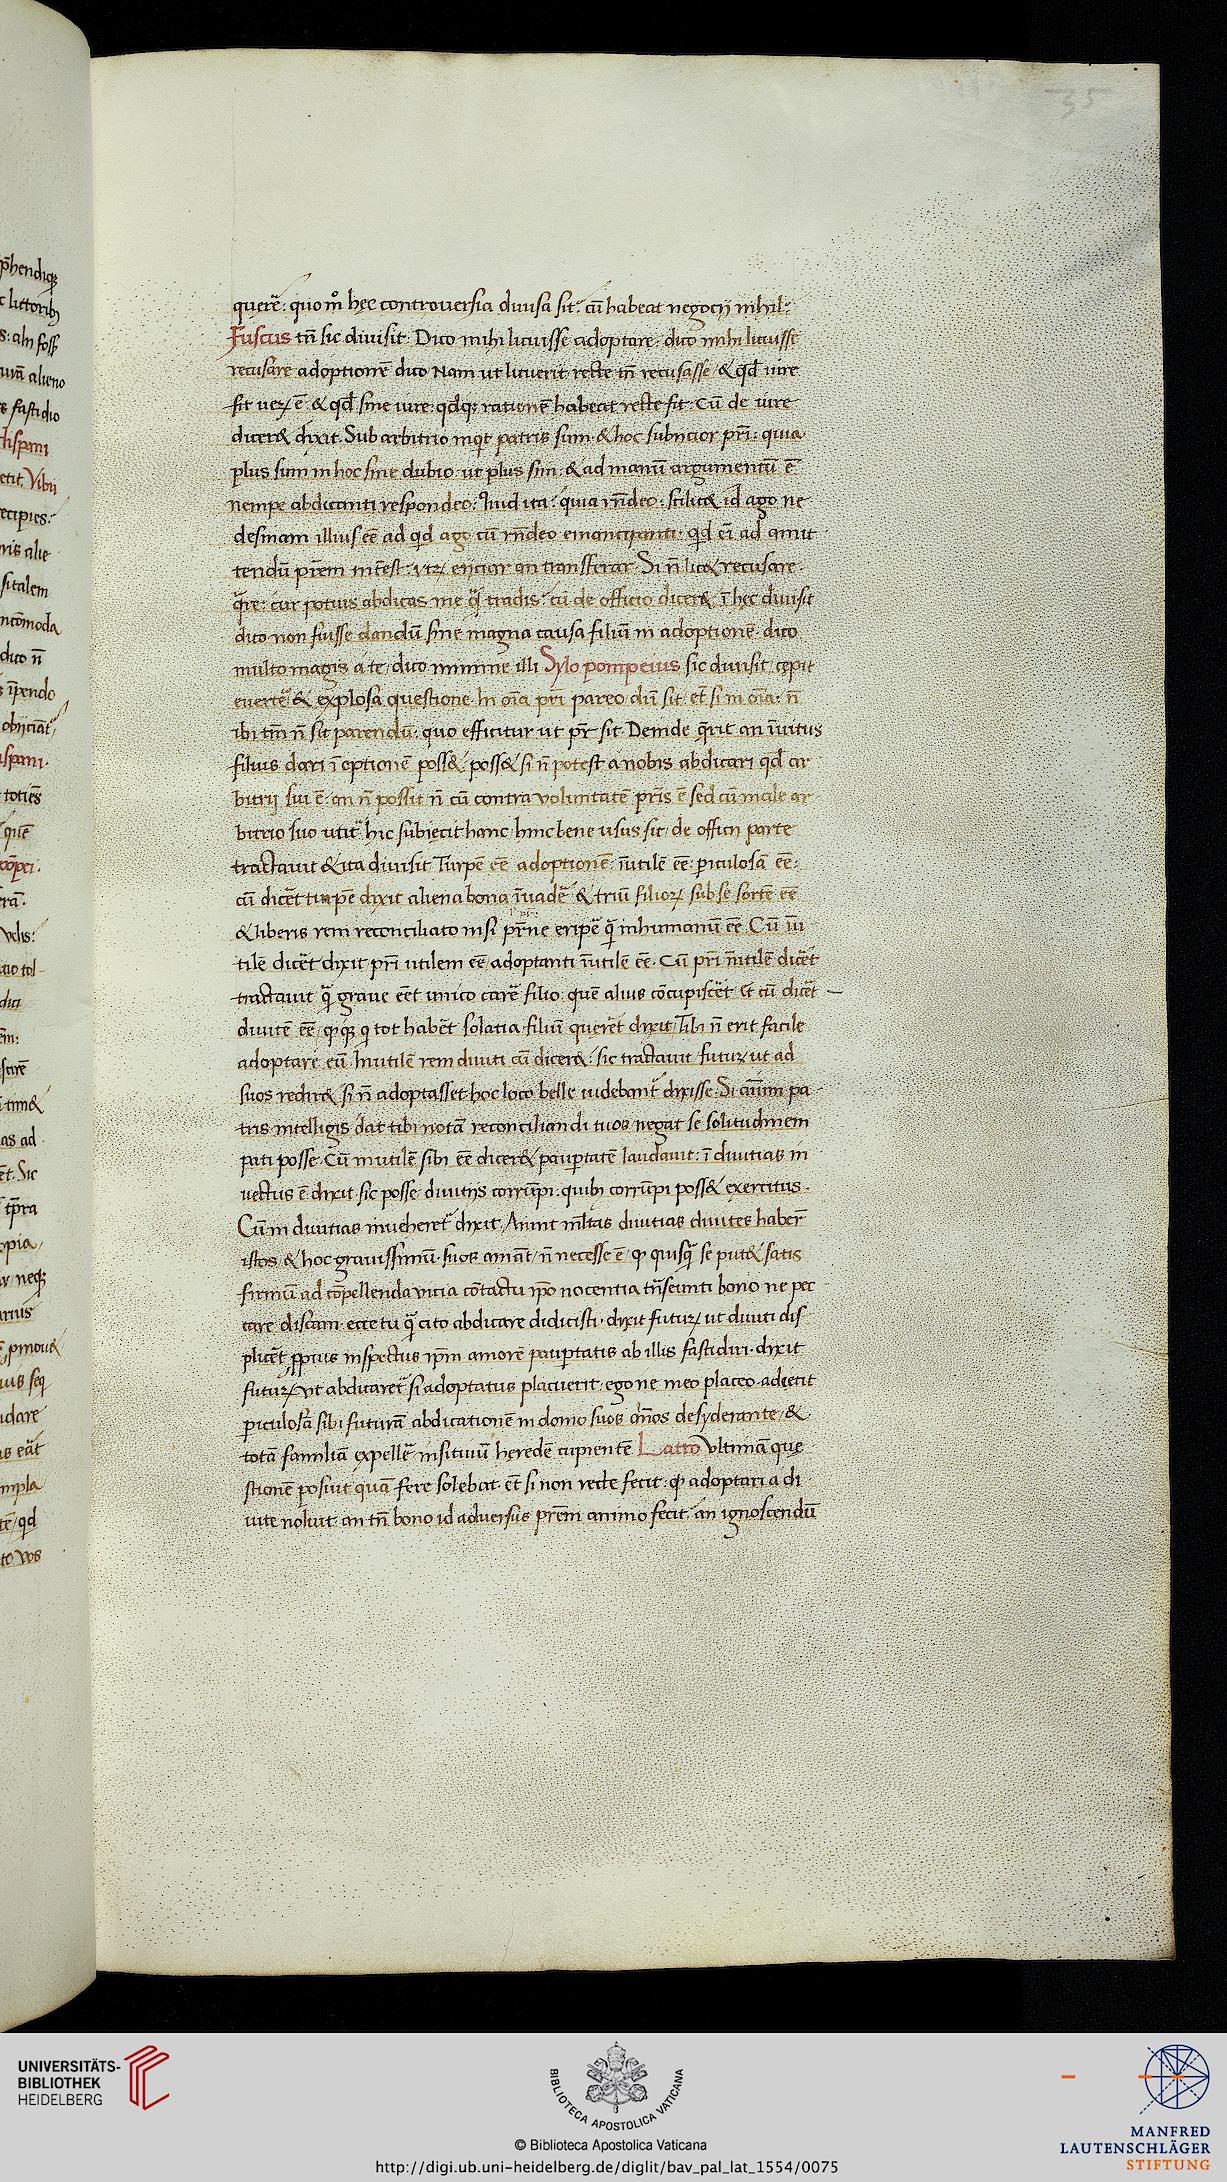 35
querē: quo mͦ hęc controversia divisa sit: cū habeat negocij nihil:
Fuscus tn̄ sic divisit. Dico mihi licuisse adoptare. dico mihi licuisse
recusare adoptionē dico Nam ut licuerit recte tn̄ recusasse / & qd̄ iure
fit &qd̄ sine iure: rationē habeat recte fit. Cū de iure
dicer& dixit. Sub arbitrio inqt patris sum. & hoc subiicior pr̄i: quia
plus sum in hoc sine dubio ut plus sim: & ad manū argumentū ē
nempe abdicanti respondeo: quia rn̄deo: scilic& id ago ne
desinam illius eē ad qd ago cū rn̄deo emancipanti qd ei ad amit
tendū prēm eiiciar an transferar. Si n̄ lic& recusare.
q̄re: cur potius abdicas me q̄ tradis: cū de officio dicer&: ī hęc divisit
dico non fuisse dandū sine magna causa filiū in adoptionē. dico
multo magis a te / dico minime illi Sylo pompeius sic divisit cępit
evertē & explosa questione. In oīa pr̄i pareo / dū sit et si in oīa: n̄
ibi tm̄ n̄ sit parendū: quo efficitur ut pr̄ sit. Deinde q̄rit an īvitus
filius dari ī optionē poss& / poss& si n̄ potest a nobis abdicari qd̄ ar
bitrij sui ē: an n̄ possit n̄ cū contra voluntatē pr̄is ē sed cū male ar
bitrio suo utit hic subiecit hanc hinc bene usus sit / de officii parte
tractavit & ita divisit Turpē eē adoptionē: īutilē eē: piculosā eē:
cū dicēt turpē dixit aliena bona īvadē & triū filioꝝ sub se sortē eē
& liberis rem reconciliato nisi pr̄ne eripē q̄ inhumanū eē. Cū īu
tilē dicēt dixit pr̄i utilem eē / adoptanti īutilē eē. Cū pr̄i īutilē dicēt
tractavit q̄ grave eēt unico carē filio: quē alius cōcupiscēt et cū dicēt
divitē eē / tot habēt solatia filiū querēt dixit / Tibi n̄ erit facile
adoptare eū. Inutilē rem diviti cū dicer&: sic tractavit futuꝝ ut ad
suos redir& si n̄ adoptasset hoc loco belle videbant dixisse. Si aīum pa
tris intelligis dat tibi notā reconciliandi tuos negat se solitudinem
pati posse. Cū inutilē sibi eē dicer& paupertatē laudavit: ī divitias in
vectus ē dixit sic posse divitijs corrūpi: quibꝫ corrūpi poss& exercitus.
Cū in divitias inveheret dixit. Aiunt m̄ltas divitias divites habēr
istos / & hoc gravissimū. suos amāt / n̄ necesse ē quisq̄ se put& satis
firmū ad cōpellenda vicia cōtactu ipo nocentia trāseunti bono ne pec
care discam ecce tu q̄ cito abdicare didicisti. dixit futuꝝ ut diviti dis
plicēt ꝓpius inspectus ipm amorē paupertatis ab illis fastidiri. dixit
futuꝝ ut abdicaret si adoptatus placuerit. ego ne meo placeo. adiecit
piculosā sibi futurā abdicationē in domo suos om̄os desyderante / &
totā familiā expellē insitivū heredē cupientē Latro Ultimā que
stionē posuit quā fere solebat. et si non recte fecit: adoptari a di
vite noluit. an tn̄ bono id adversus prēm animo fecit / an ignoscendū
UNIVERSITÄTS-
BIBLIOTHEK
HEIDELBERG
BIBLIOTECA APOSTOLICA VATICANA
© Biblioteca Apostolica Vaticana
http://digi.ub.uni-heidelberg.de/diglit/bav_pal_lat_1554/0075
MANFRED
LAUTENSCHLÄGER
STIFTUNG